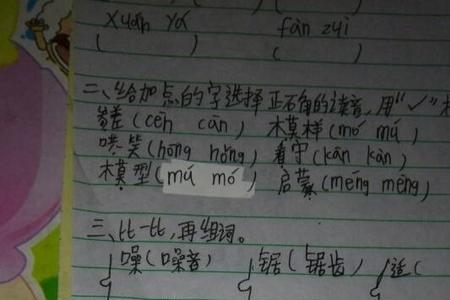 xuán yá fàn zuì
( ) ( )
二、给加点的字选择正确的读音,用“✓”
参差(cēn cān) 模样(mó mú)
哄笑(hōng hǒng) 看守(kān kàn)
模型(mú mó) 启蒙(méng mēng)
三、比一比,再组词。
噪(噪音) 锯(锯齿)